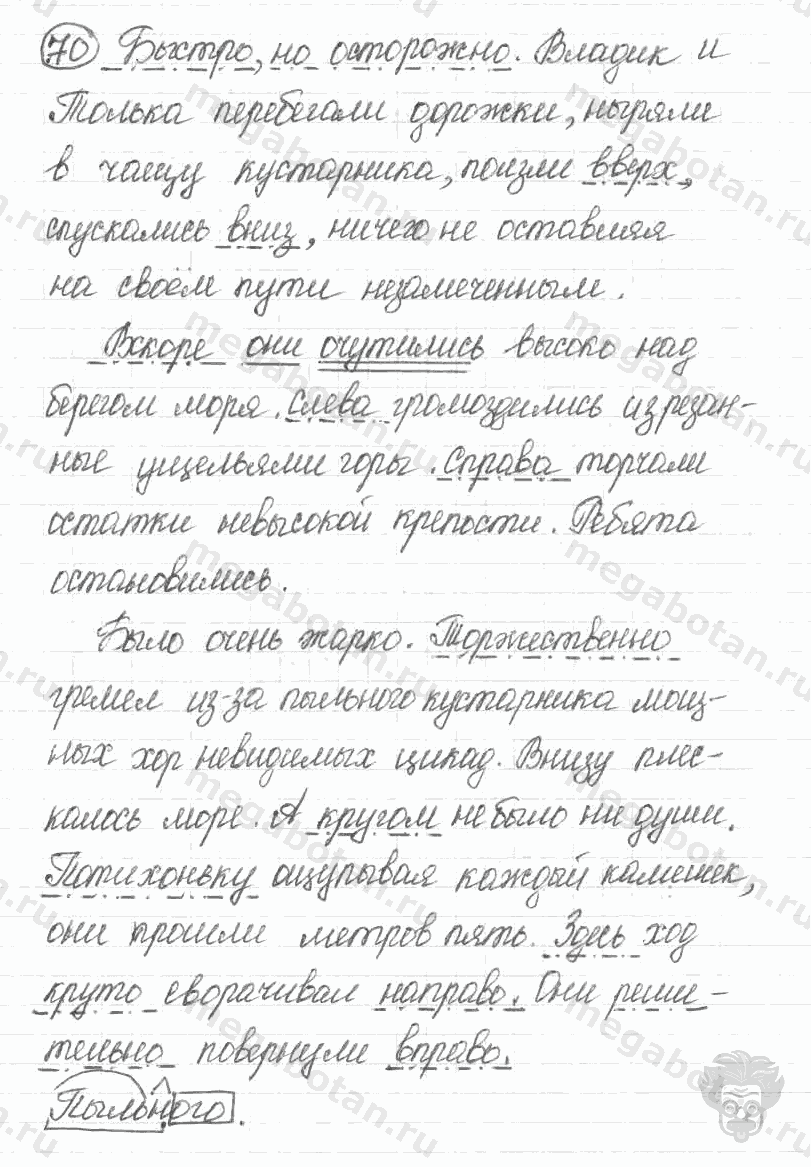 70 Быстро, но осторожно. Владик и
Толька перебегали дорожки, ныряли
в чащу кустарника, ползли вверх,
спускались вниз, ничего не оставляя
на своём пути незамеченным.
Вскоре они очутились высоко над
берегом моря. Слева громоздились изрезан-
ные ущельями горы. Справа торчали
остатки невысокой крепости. Ребята
остановились.
Было очень жарко. Торжественно
гремел из-за пыльного кустарника мощ-
ных хор невидимых цикад. Внизу плес-
калось море. А кругом не было ни души.
Потихоньку ощупывая каждый камешек,
они прошли метров пять. Здесь ход
круто сворачивал направо. Они реши-
тельно повернули вправо.
Пыльного.
megabotan.ru